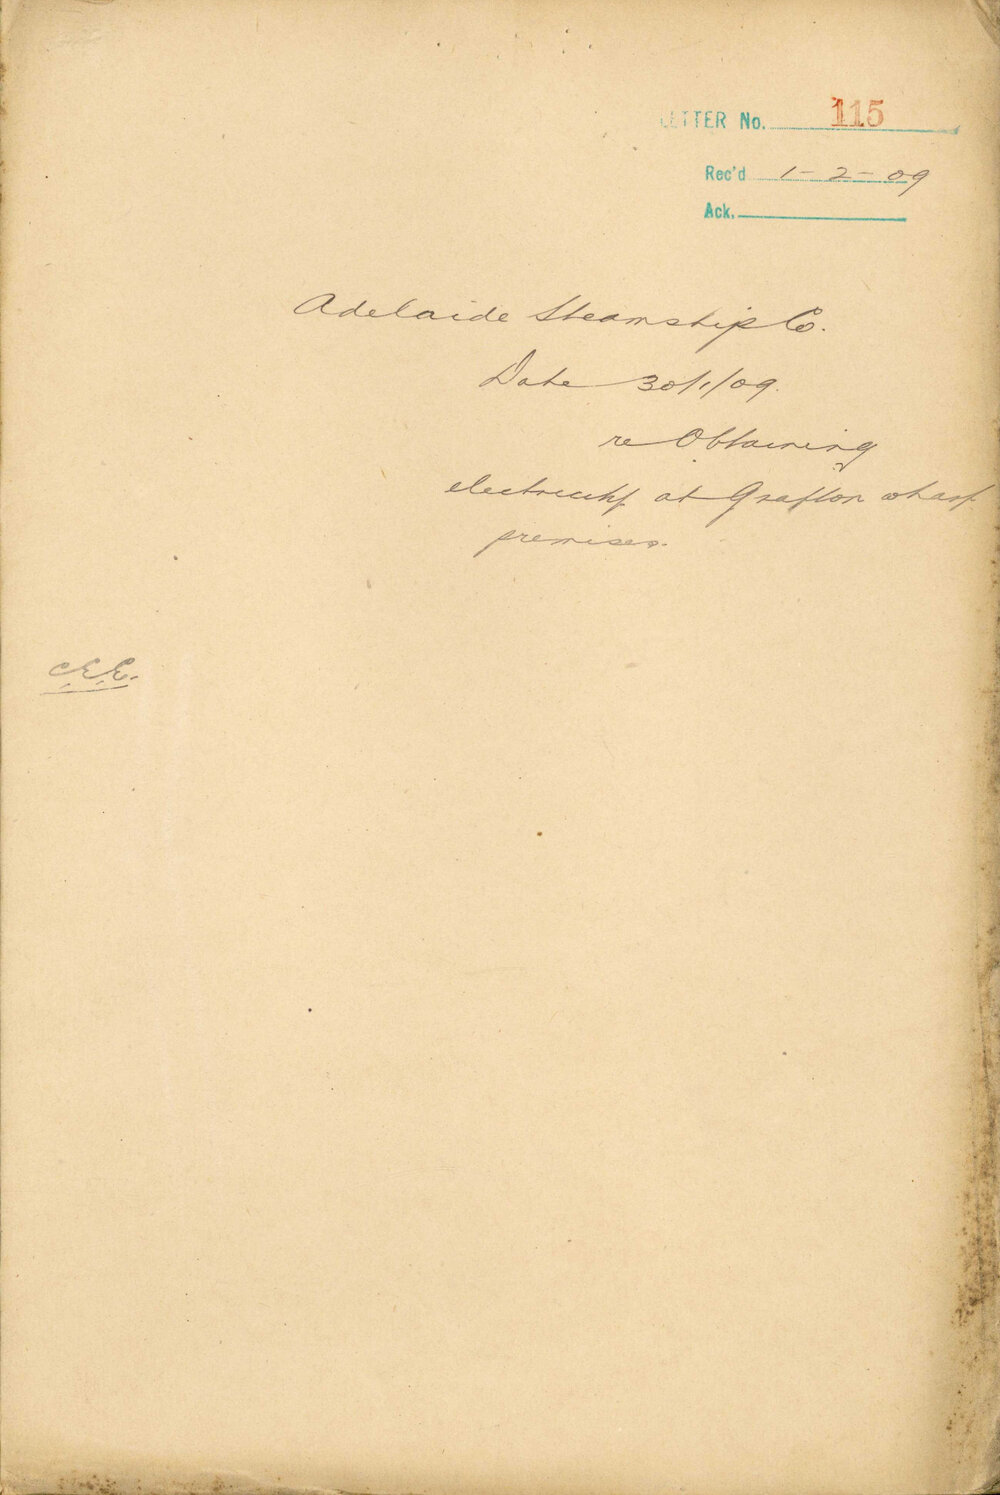 LETTER No. 115
Rec'd 1-2-09
Ack.
Adelaide Steamship Co.
Date 30/1/09.
re Obtaining
electricity at Grafton wharf
premises.
C.E.E.